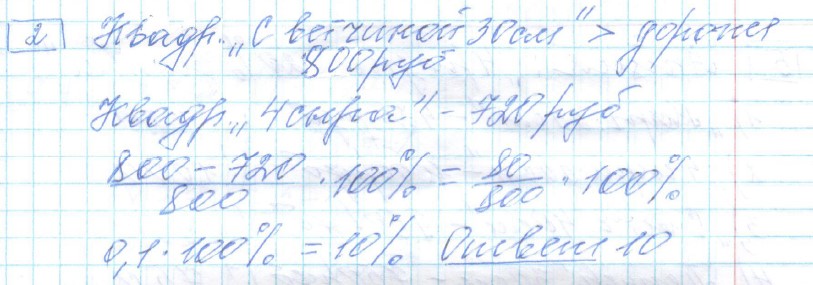 2 Квадр. „С ветчиной 30см" > дороже
800руб
Квадр. „4 сыра" - 720 руб
800 - 720 / 800 · 100% = 80 / 800 · 100%
0,1 · 100% = 10% Ответ 10